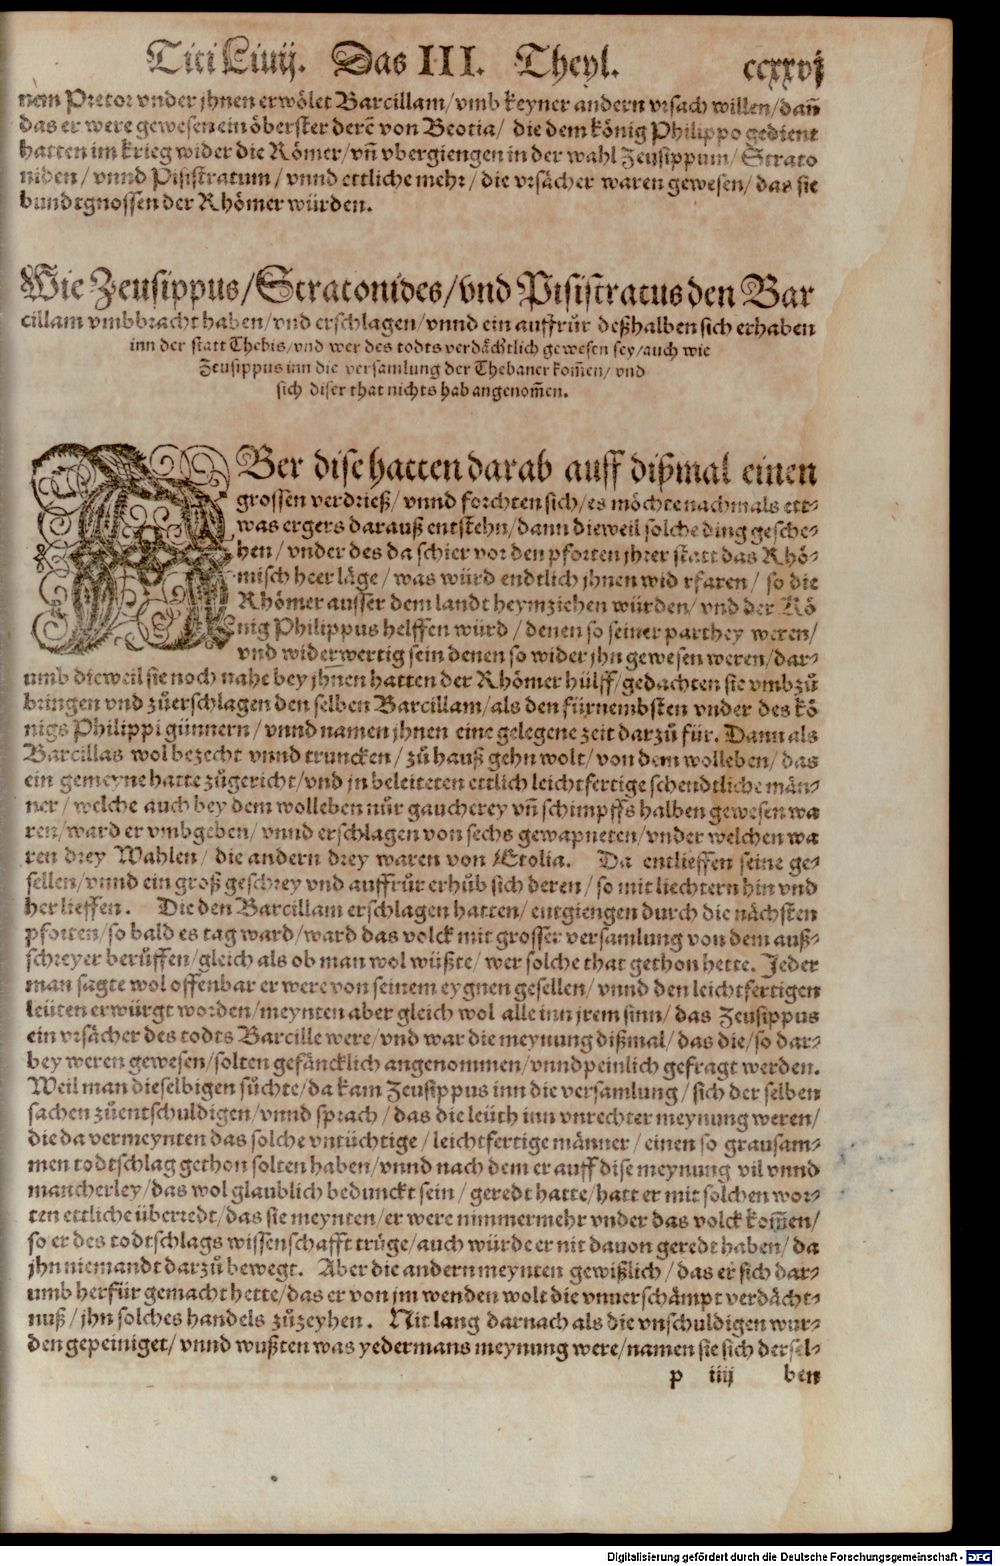 Titi Liuij. Das III. Theyl. ccxxvj
nem Pretor vnder jhnen erwölet Barcillam/vmb keyner andern vrsach willen/dañ
das er were gewesen ein öberster derē von Beotia/ die dem könig Philippo gedient
hatten im krieg wider die Römer/vñ vbergiengen in der wahl Zeusippum/ Strato
niden/vnnd Pisistratum/vnnd ettliche mehr/die vrsächer waren gewesen/das sie
bundtgnossen der Rhömer würden.
Wie Zeusippus/Stratonides/vnd Pisistratus den Bar
cillam vmbbracht haben/vnd erschlagen/vnnd ein auffrůr deßhalben sich erhaben
inn der statt Thebis/vnd wer des todts verdächtlich gewesen sey/auch wie
Zeusippus inn die versamlung der Thebaner kom̃en/vnd
sich diser that nichts hab angenom̃en.
ABer dise hatten darab auff dißmal einen
grossen verdrieß/vnnd forchten sich/es möchte nachmals ett-
was ergers darauß entstehn/dann dieweil solche ding gesche-
hen/vnder des da schier vor den pforten jhrer statt das Rhö-
misch heer läge/was würd endtlich jhnen wid rfaren/ so die
Rhömer ausser dem landt heymziehen würden/vnd der Kö
nig Philippus helffen würd/denen so seiner parthey weren/
vnd widerwertig sein denen so wider jhn gewesen weren/dar-
umb dieweil sie noch nahe bey jhnen hatten der Rhömer hülff/gedachten sie vmbzů
bringen vnd zůerschlagen den selben Barcillam/als den fürnembsten vnder des kö
nigs Philippi günnern/vnnd namen jhnen eine gelegene zeit darzů für. Dann als
Barcillas wol bezecht vnnd truncken/zů hauß gehn wolt/von dem wolleben/das
ein gemeyne hatte zůgericht/vnd jn beleiteten ettlich leichtfertige schendtliche män-
ner/welche auch bey dem wolleben nůr gaucherey vñ schimpffs halben gewesen wa
ren/ward er vmbgeben/vnnd erschlagen von sechs gewapneten/vnder welchen wa
ren drey Wahlen/die andern drey waren von Etolia. Da entlieffen seine ge-
sellen/vnnd ein groß geschrey vnd auffrůr erhůb sich deren/so mit liechtern hin vnd
her lieffen. Die den Barcillam erschlagen hatten/entgiengen durch die nächsten
pforten/so bald es tag ward/ward das volck mit grosser versamlung von dem auß-
schreyer berůffen/gleich als ob man wol wüßte/wer solche that gethon hette. Jeder
man sagte wol offenbar er were von seinem eygnen gesellen/vnnd den leichtfertigen
leüten erwürgt worden/meynten aber gleich wol alle inn jrem sinn/das Zeusippus
ein vrsächer des todts Barcille were/vnd war die meynung dißmal/das die/so dar-
bey weren gewesen/solten gefäncklich angenommen/vnnd peinlich gefragt werden.
Weil man dieselbigen sůchte/da kam Zeusippus inn die versamlung/sich der selben
sachen zůentschuldigen/vnnd sprach/das die leüth inn vnrechter meynung weren/
die da vermeynten das solche vntüchtige/leichtfertige männer/einen so grausam-
men todtschlag gethon solten haben/vnnd nach dem er auff dise meynung vil vnnd
mancherley/das wol glaublich bedunckt sein/geredt hatte/hatt er mit solchen wor-
ten ettliche überredt/das sie meynten/er were nimmermehr vnder das volck kom̃en/
so er des todtschlags wissenschafft trüge/auch würde er nit dauon geredt haben/da
jhn niemandt darzů bewegt. Aber die andern meynten gewißlich/das er sich dar-
umb herfür gemacht hette/das er von jm wenden wolt die vnuerschämpt verdächt-
nuß/jhn solches handels zůzeyhen. Nit lang darnach als die vnschuldigen wur-
den gepeiniget/vnnd wußten was yedermans meynung were/namen sie sich dersel-
p iiij ben
Digitalisierung gefördert durch die Deutsche Forschungsgemeinschaft - DFG